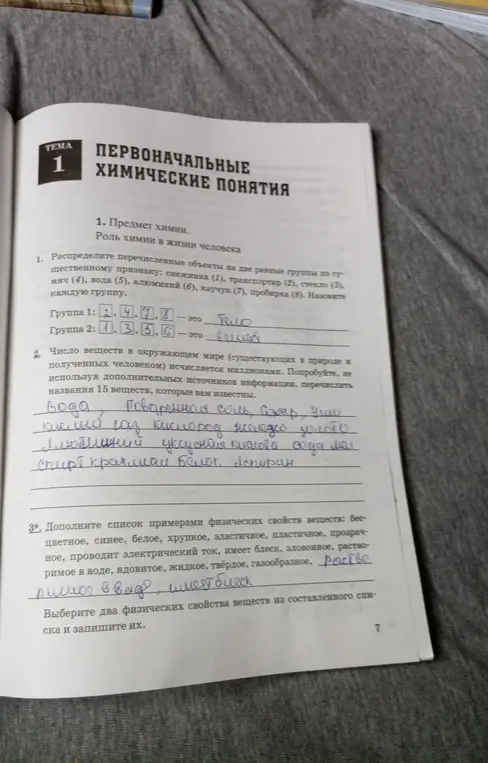 ТЕМА
1
ПЕРВОНАЧАЛЬНЫЕ
ХИМИЧЕСКИЕ ПОНЯТИЯ
1. Предмет химии.
Роль химии в жизни человека
1. Распределите перечисленные объекты на две равные группы по су-
щественному признаку: снежинка (1), транспортир (2), стекло (3),
мяч (4), вода (5), алюминий (6), каучук (7), пробирка (8). Назовите
каждую группу.
Группа 1: 2, 4, 7, 8 — это тело
Группа 2: 1, 3, 5, 6 — это
2. Число веществ в окружающем мире (существующих в природе и
полученных человеком) исчисляется миллионами. Попробуйте, не
используя дополнительных источников информации, перечислить
названия 15 веществ, которые вам известны.
Вода, Поваренная соль, Сахар, Угле
кислый газ кислород железо золото
Алюминий уксусная кислота сода мел
спирт крахмал Белок Аспирин
3*. Дополните список примерами физических свойств веществ: бес-
цветное, синее, белое, хрупкое, эластичное, пластичное, прозрач-
ное, проводит электрический ток, имеет блеск, зловонное, раство-
римое в воде, ядовитое, жидкое, твёрдое, газообразное, раство
римое в воде, имеет блеск
Выберите два физических свойства веществ из составленного спи-
ска и запишите их.
7